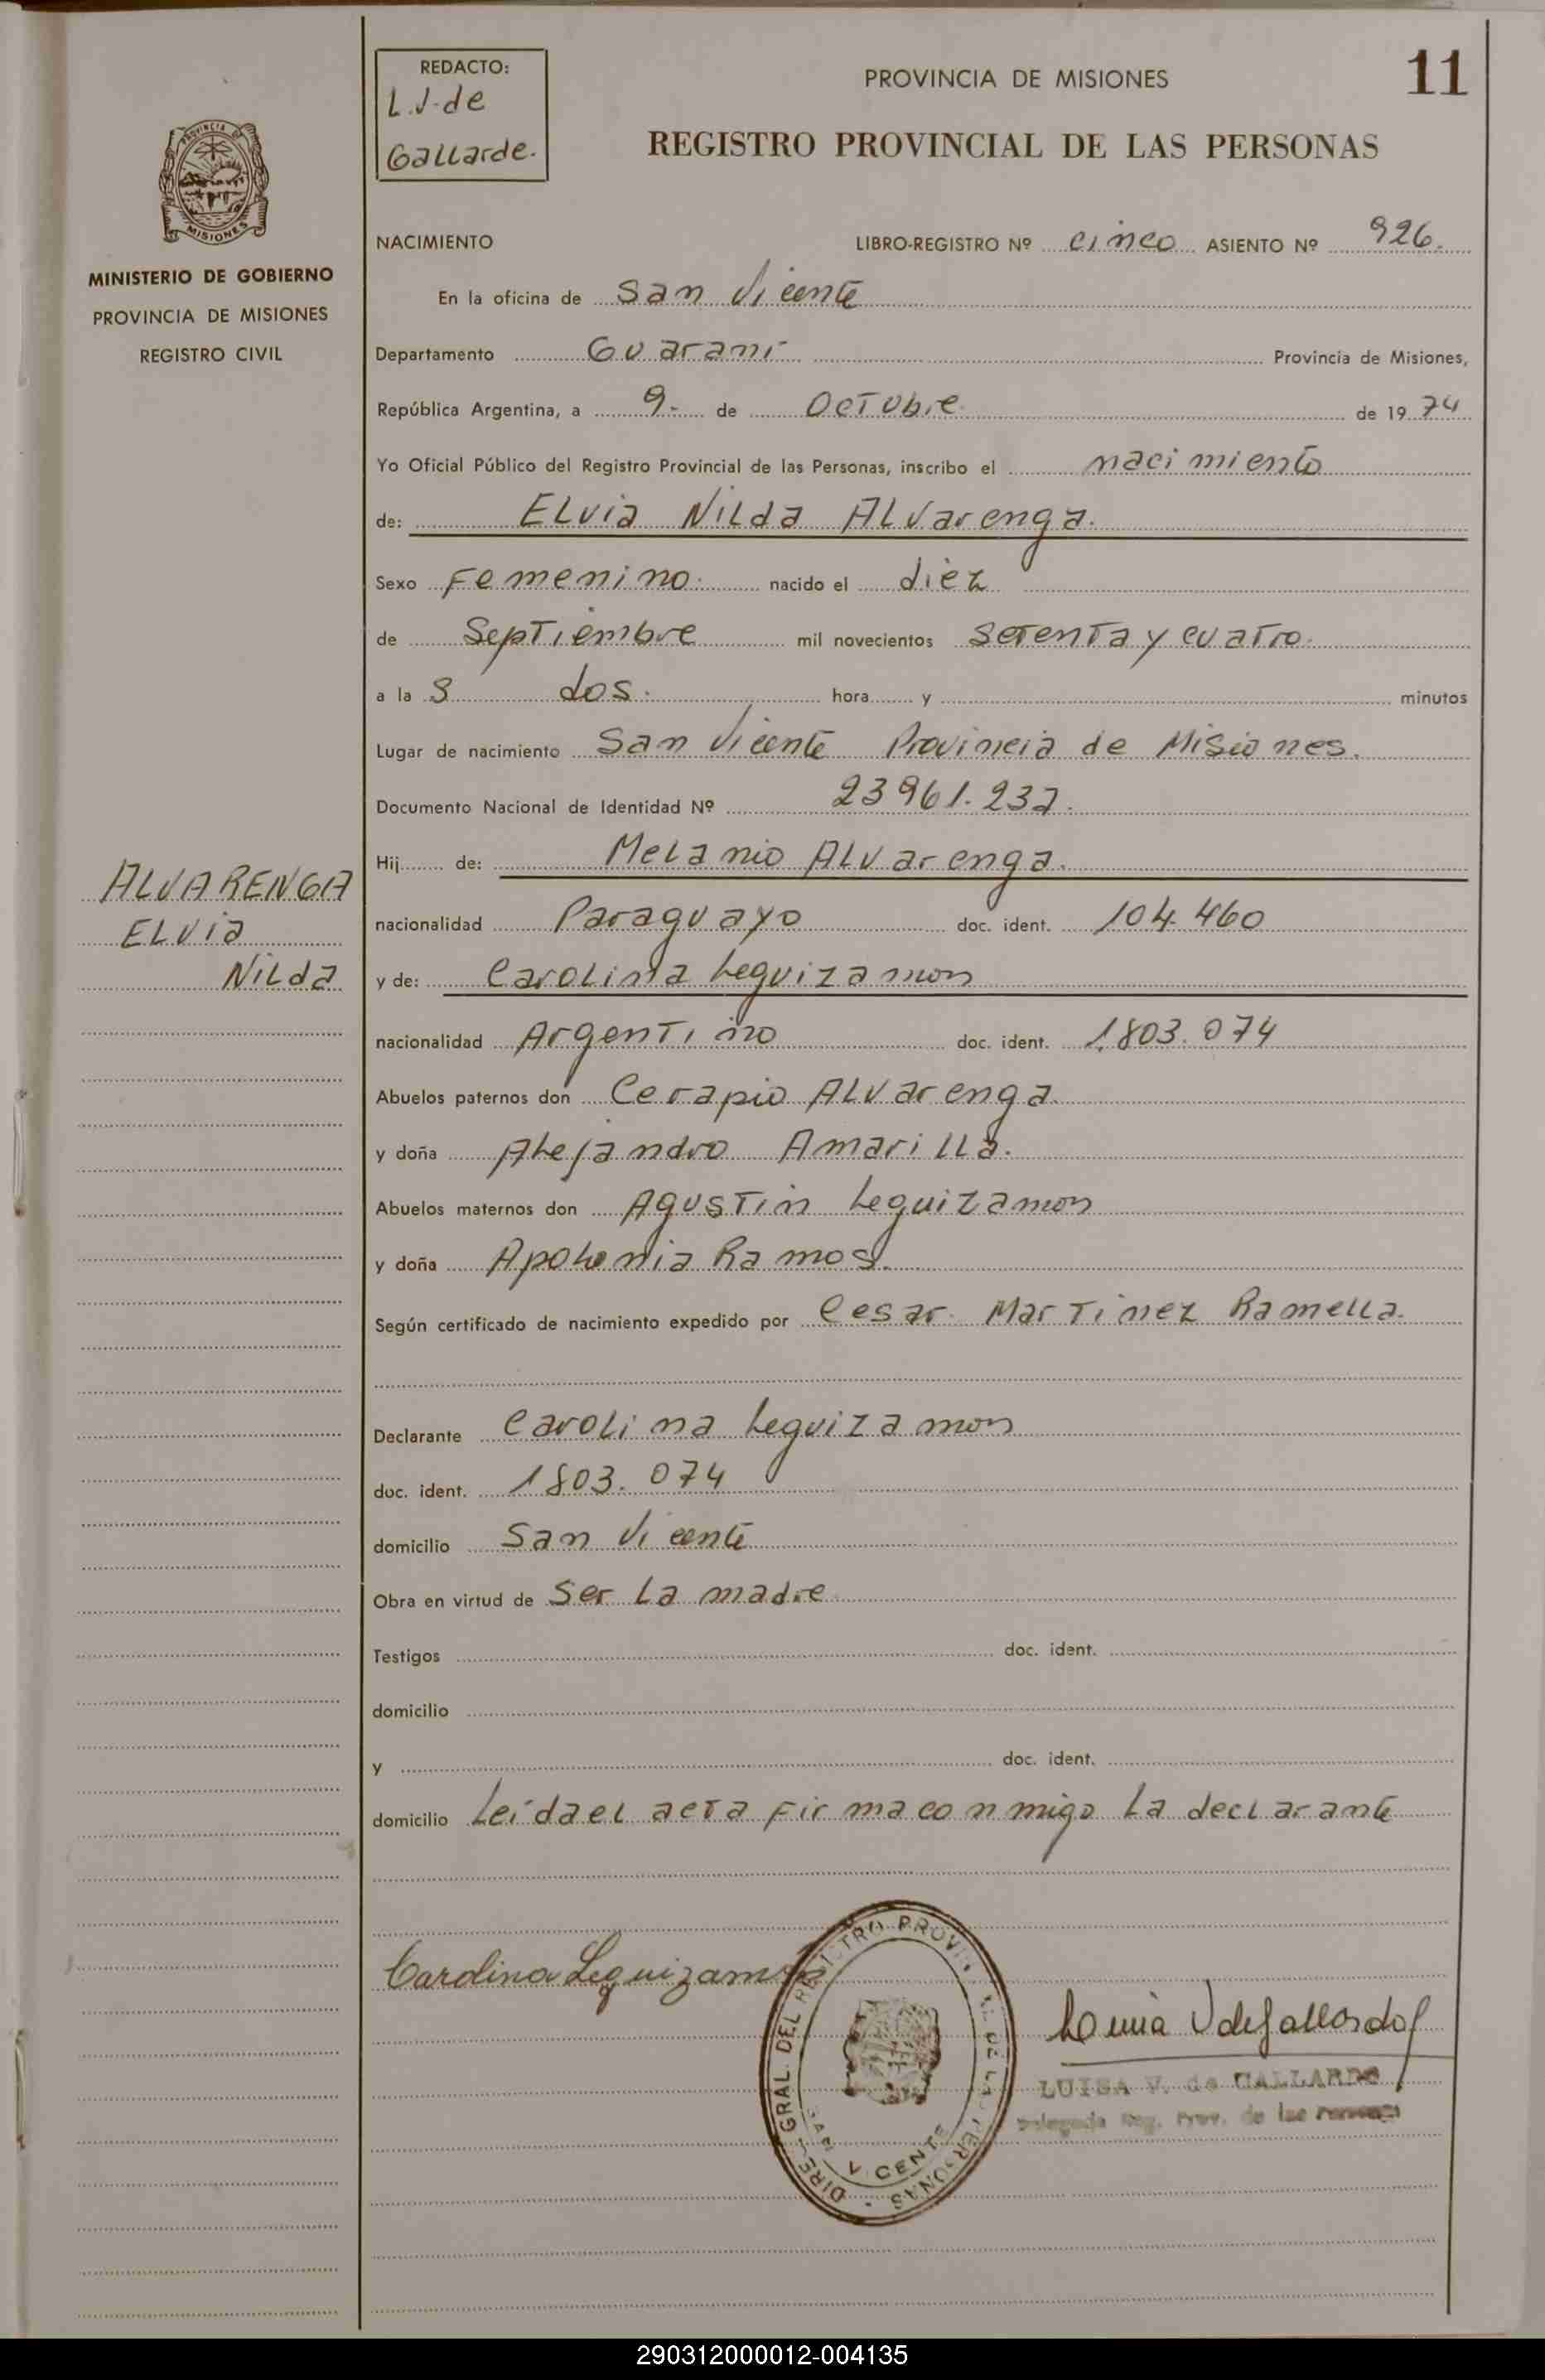 REDACTO:
L.J. de
Gallarde.
PROVINCIA DE MISIONES
11
REGISTRO PROVINCIAL DE LAS PERSONAS
PROVINCIA DE
MISIONES
MINISTERIO DE GOBIERNO
PROVINCIA DE MISIONES
REGISTRO CIVIL
NACIMIENTO LIBRO-REGISTRO Nº cinco ASIENTO Nº 926.
En la oficina de San Vicente
Departamento Guaraní Provincia de Misiones,
República Argentina, a 9- de Octubre de 1974
Yo Oficial Público del Registro Provincial de las Personas, inscribo el nacimiento
de: Elvia Nilda Alvarenga.
Sexo Femenino. nacido el diez
de Septiembre mil novecientos setenta y cuatro.
a la s dos. hora y minutos
Lugar de nacimiento San Vicente Provincia de Misiones.
Documento Nacional de Identidad Nº 23961.237.
Hij de: Melanio Alvarenga.
nacionalidad Paraguayo doc. ident. 104.460
y de: Carolina Leguizamon
nacionalidad Argentino doc. ident. 1.803.074
Abuelos paternos don Cerapio Alvarenga.
y doña Alejandro Amarilla.
Abuelos maternos don Agustin Leguizamon
y doña Apolonia Ramos.
Según certificado de nacimiento expedido por Cesar Martinez Ramella.
Declarante Carolina Leguizamon
doc. ident. 1803.074
domicilio San Vicente
Obra en virtud de Ser la madre
Testigos doc. ident.
domicilio
y doc. ident.
domicilio Leida el acta firma conmigo la declarante
ALVARENGA
Elvia
Nilda
Carolina Leguizamón
DIREC. GRAL. DEL REGISTRO PROVINCIAL DE LAS PERSONAS
SAN VICENTE
Luisa V de Gallardo
LUISA V. de GALLARDO
Delegada Reg. Prov. de las Personas
290312000012-004135